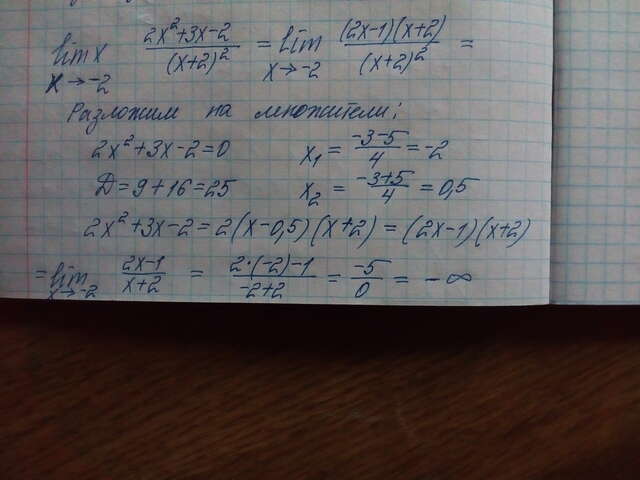 lim x 2x²+3x-2 / (x+2)² = lim (2x-1)(x+2) / (x+2)² =
x→-2 x→-2
Разложим на множители:
2x²+3x-2=0 x₁ = -3-5 / 4 = -2
D=9+16=25 x₂ = -3+5 / 4 = 0,5
2x²+3x-2=2(x-0,5)(x+2)=(2x-1)(x+2)
= lim 2x-1 / x+2 = 2·(-2)-1 / -2+2 = -5 / 0 = -∞
x→-2